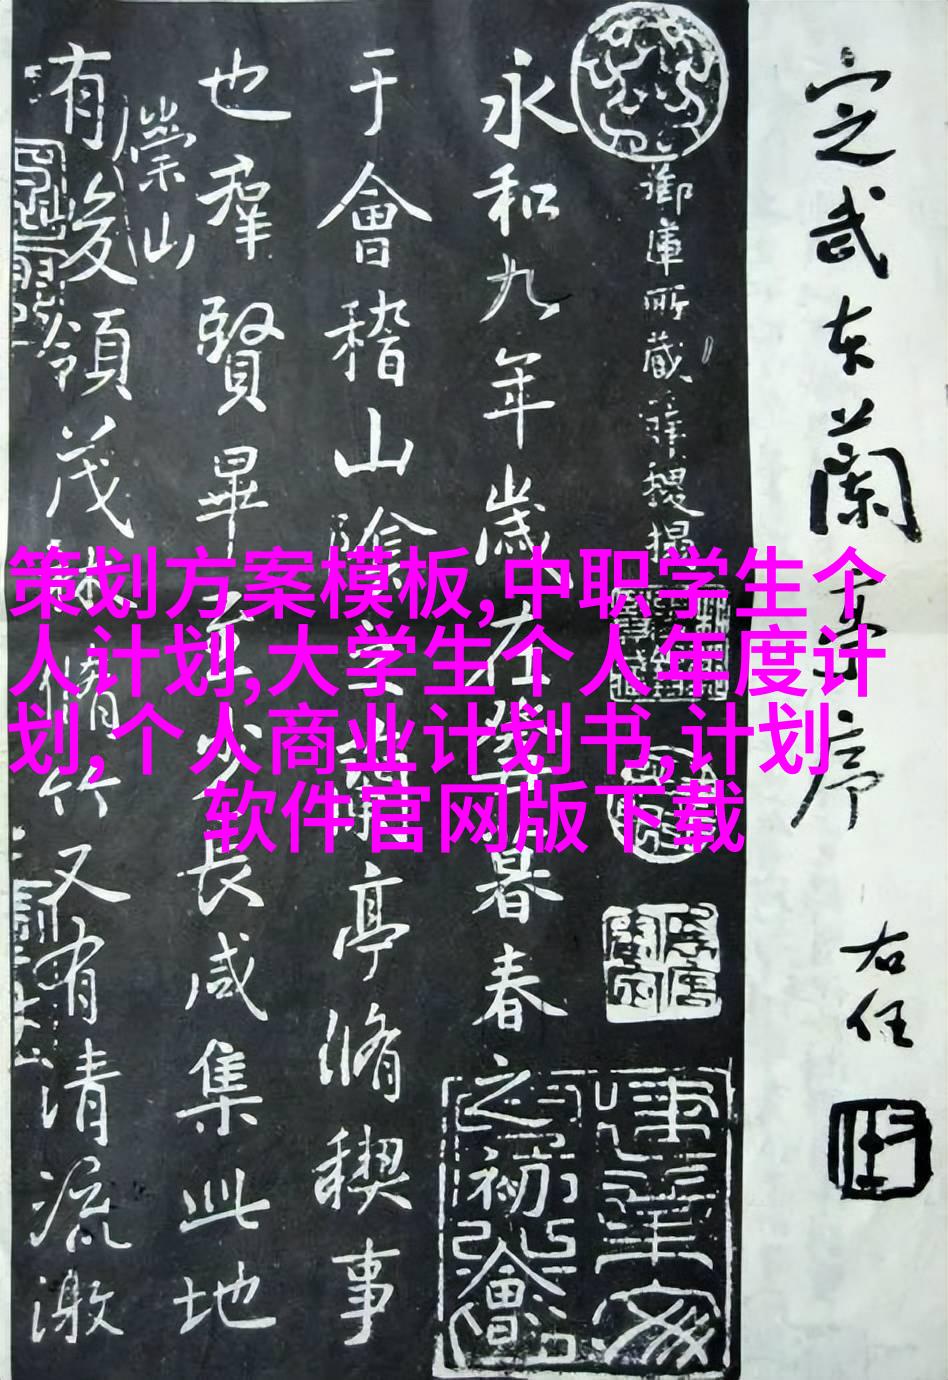 定武本蘭亭序
右任
御庫所藏薛稷揭
永和九年歲在癸丑暮春之初會
于會稽山陰之蘭亭脩禊事
也羣賢畢至少長咸集此地
崇山
有峻領茂林脩竹又有清流激
策划方案模板,中职学生个
人计划,大学生个人年度计
划,个人商业计划书,计划
软件官网版下载